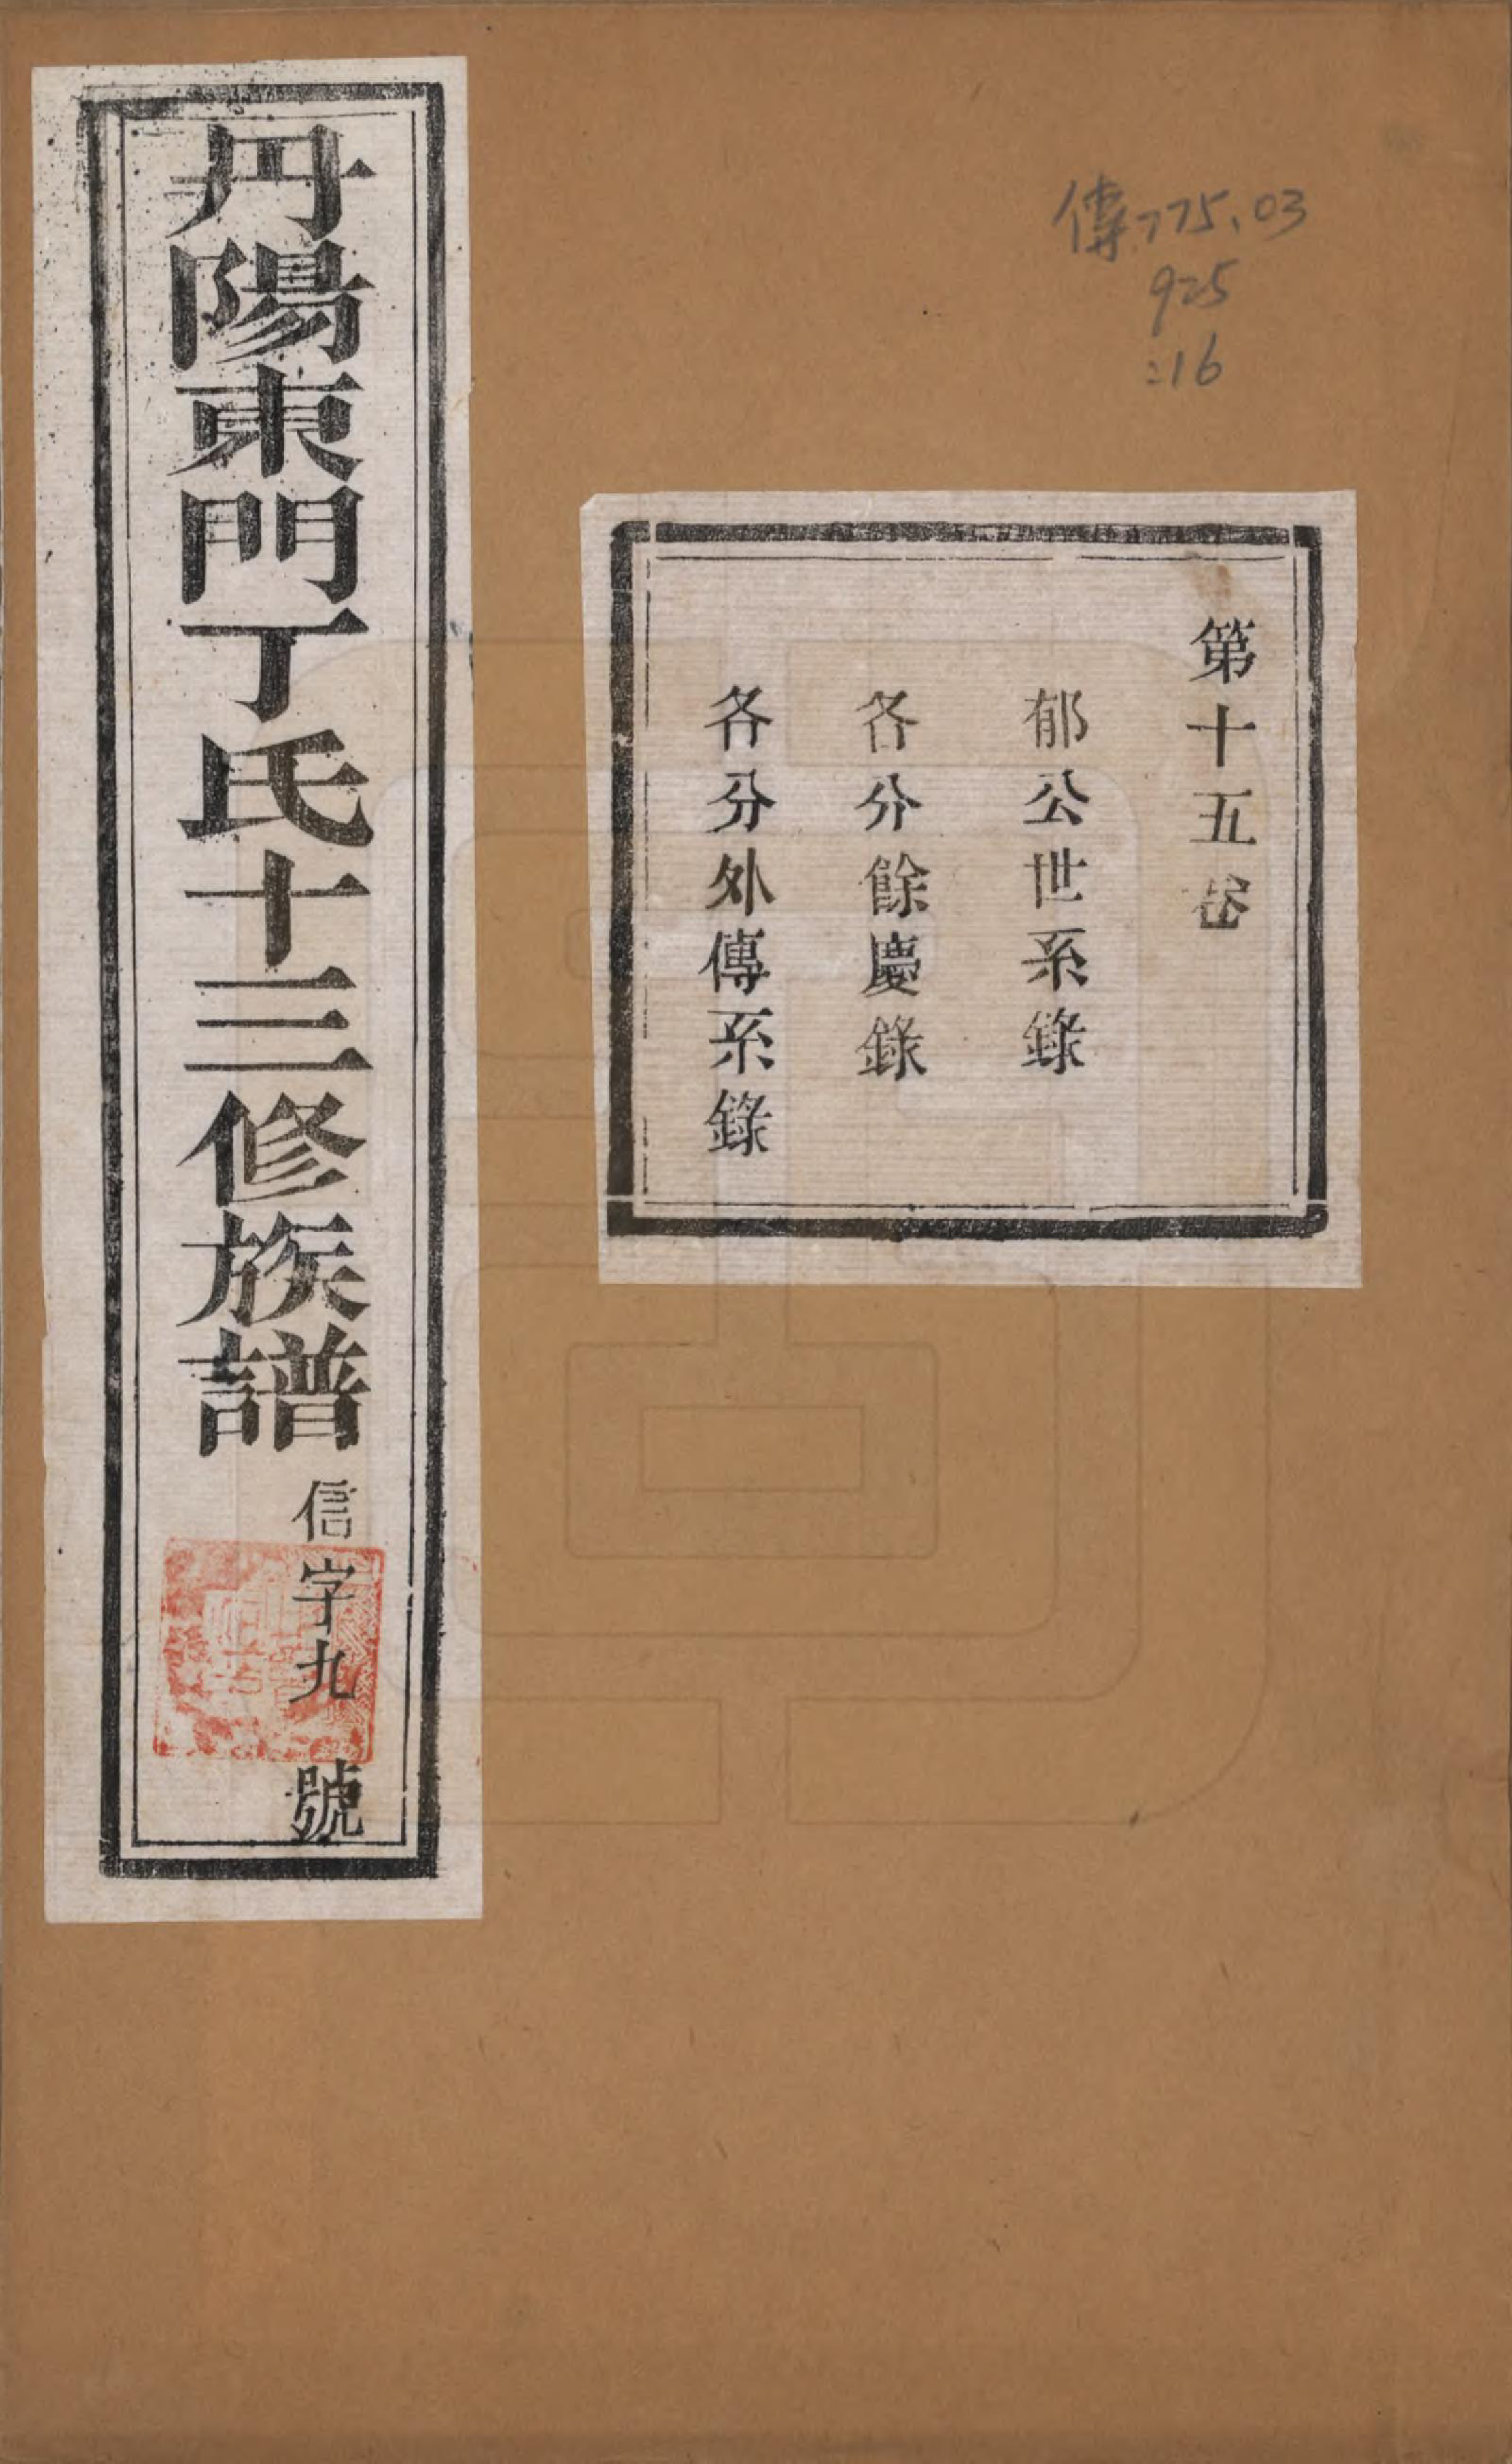 傳775.03
925
:16
第十五卷
郁公世系錄
各分餘慶錄
各分外傳系錄
丹陽東門丁氏十三修族譜
信字九號